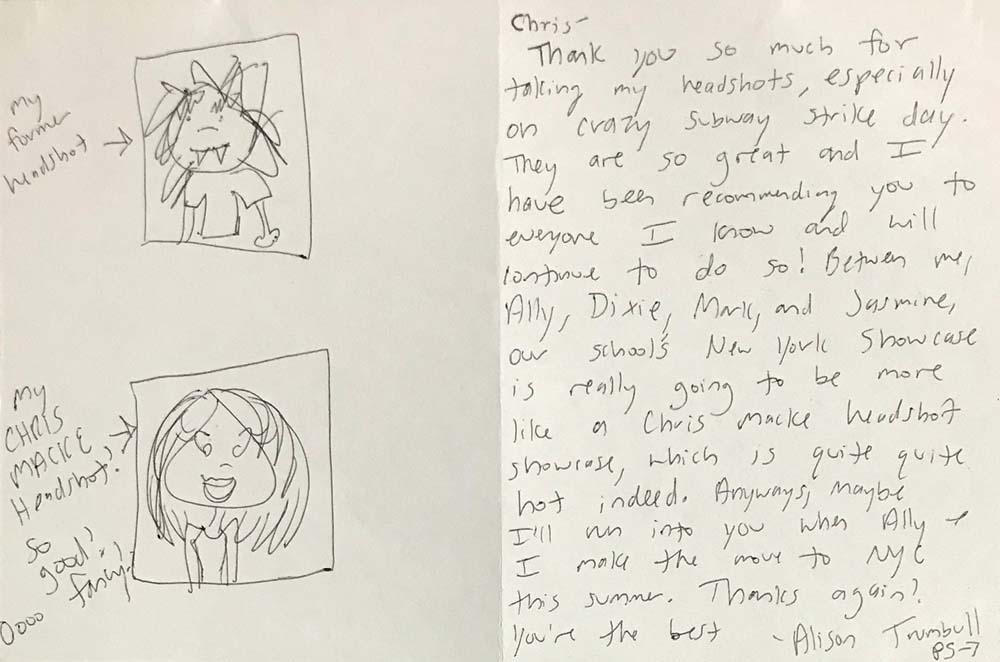 my
former
headshot →
my
CHRIS
MACKE →
Headshot!
so
good!
fancy!
Oooo
Chris-
Thank you so much for
taking my headshots, especially
on crazy subway strike day.
They are so great and I
have been recommending you to
everyone I know and will
continue to do so! Between me,
Ally, Dixie, Mark, and Jasmine,
our school's New York Showcase
is really going to be more
like a Chris Macke headshot
showcase, which is quite quite
hot indeed. Anyways, maybe
I'll run into you when Ally +
I make the move to NYC
this summer. Thanks again!
You're the best - Alison Trumbull